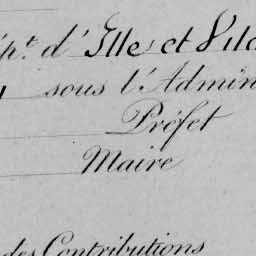 dépt d'Ille et Vila
sous l'Admin
Préfet
Maire
des Contributions